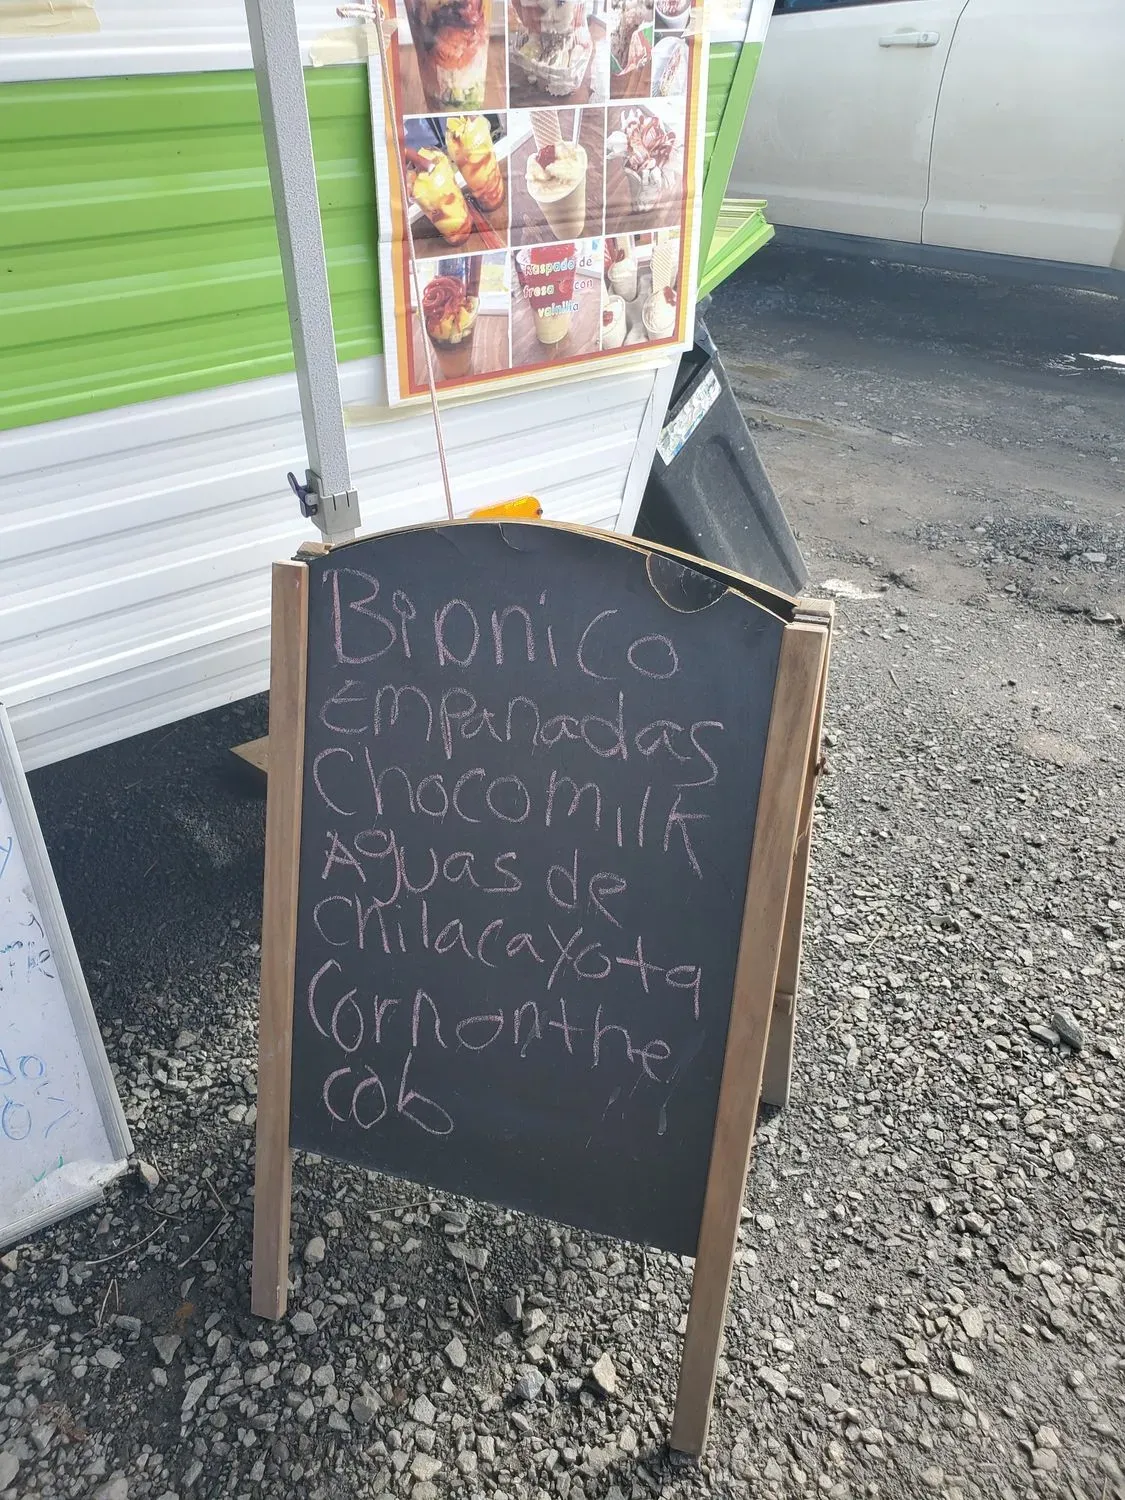 Raspado de
fresa con
vainilla
Bionico
Empanadas
Chocomilk
Aguas de
Chilacayota
Corn on the
cob